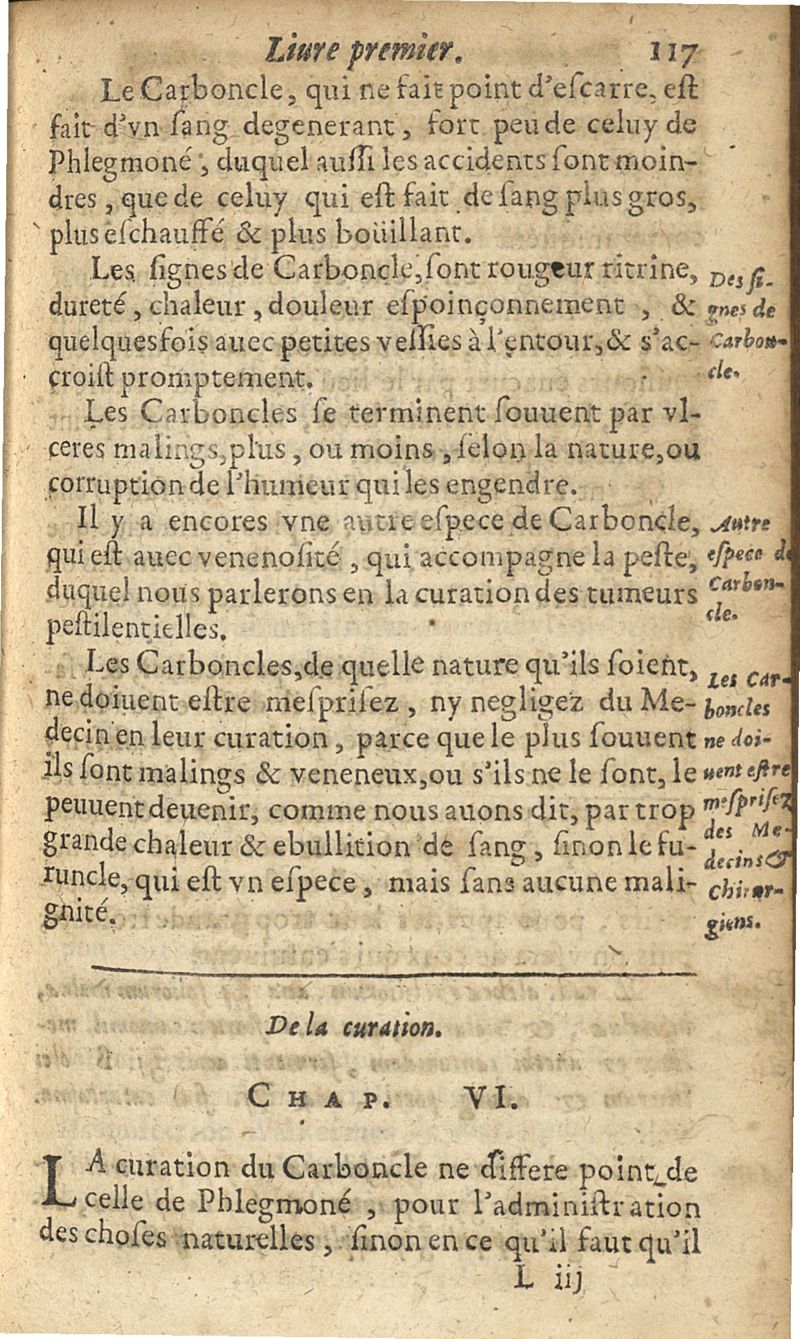 Liure premier. 117
Le Carboncle, qui ne fait point d'eſcarre, eſt
fait d'vn ſang degenerant, fort peu de celuy de
Phlegmoné, duquel auſſi les accidents ſont moin-
dres, que de celuy qui eſt fait de ſang plus gros,
plus eſchauffé & plus boüillant.
Les ſignes de Carboncle, ſont rougeur ritrine,
dureté, chaleur, douleur eſpoinçonnement, &
quelquesfois auec petites veſſies à l'entour, & s'ac-
croiſt promptement.
Des ſi-
gnes de
Carbon-
cle.
Les Carboncles ſe terminent ſouuent par vl-
ceres malings, plus, ou moins, ſelon la nature, ou
corruption de l'humeur qui les engendre.
Il y a encores vne autre eſpece de Carboncle,
qui eſt auec venenoſité, qui accompagne la peſte,
duquel nous parlerons en la curation des tumeurs
peſtilentielles.
Autre
eſpece de
Carbon-
cle.
Les Carboncles, de quelle nature qu'ils ſoient,
ne doiuent eſtre meſpriſez, ny negligez du Me-
decin en leur curation, parce que le plus ſouuent
ils ſont malings & veneneux, ou s'ils ne le ſont, le
peuuent deuenir, comme nous auons dit, par trop
grande chaleur & ebullition de ſang, ſinon le fu-
runcle, qui eſt vn eſpece, mais ſans aucune mali-
gnité.
Les Car-
boncles
ne doi-
uent eſtre
meſpriſez
des Me-
decins &
Chirur-
giens.
De la curation.
CHAP. VI.
LA curation du Carboncle ne differe point de
celle de Phlegmoné, pour l'adminiſtration
des choſes naturelles, ſinon en ce qu'il faut qu'il
L iij